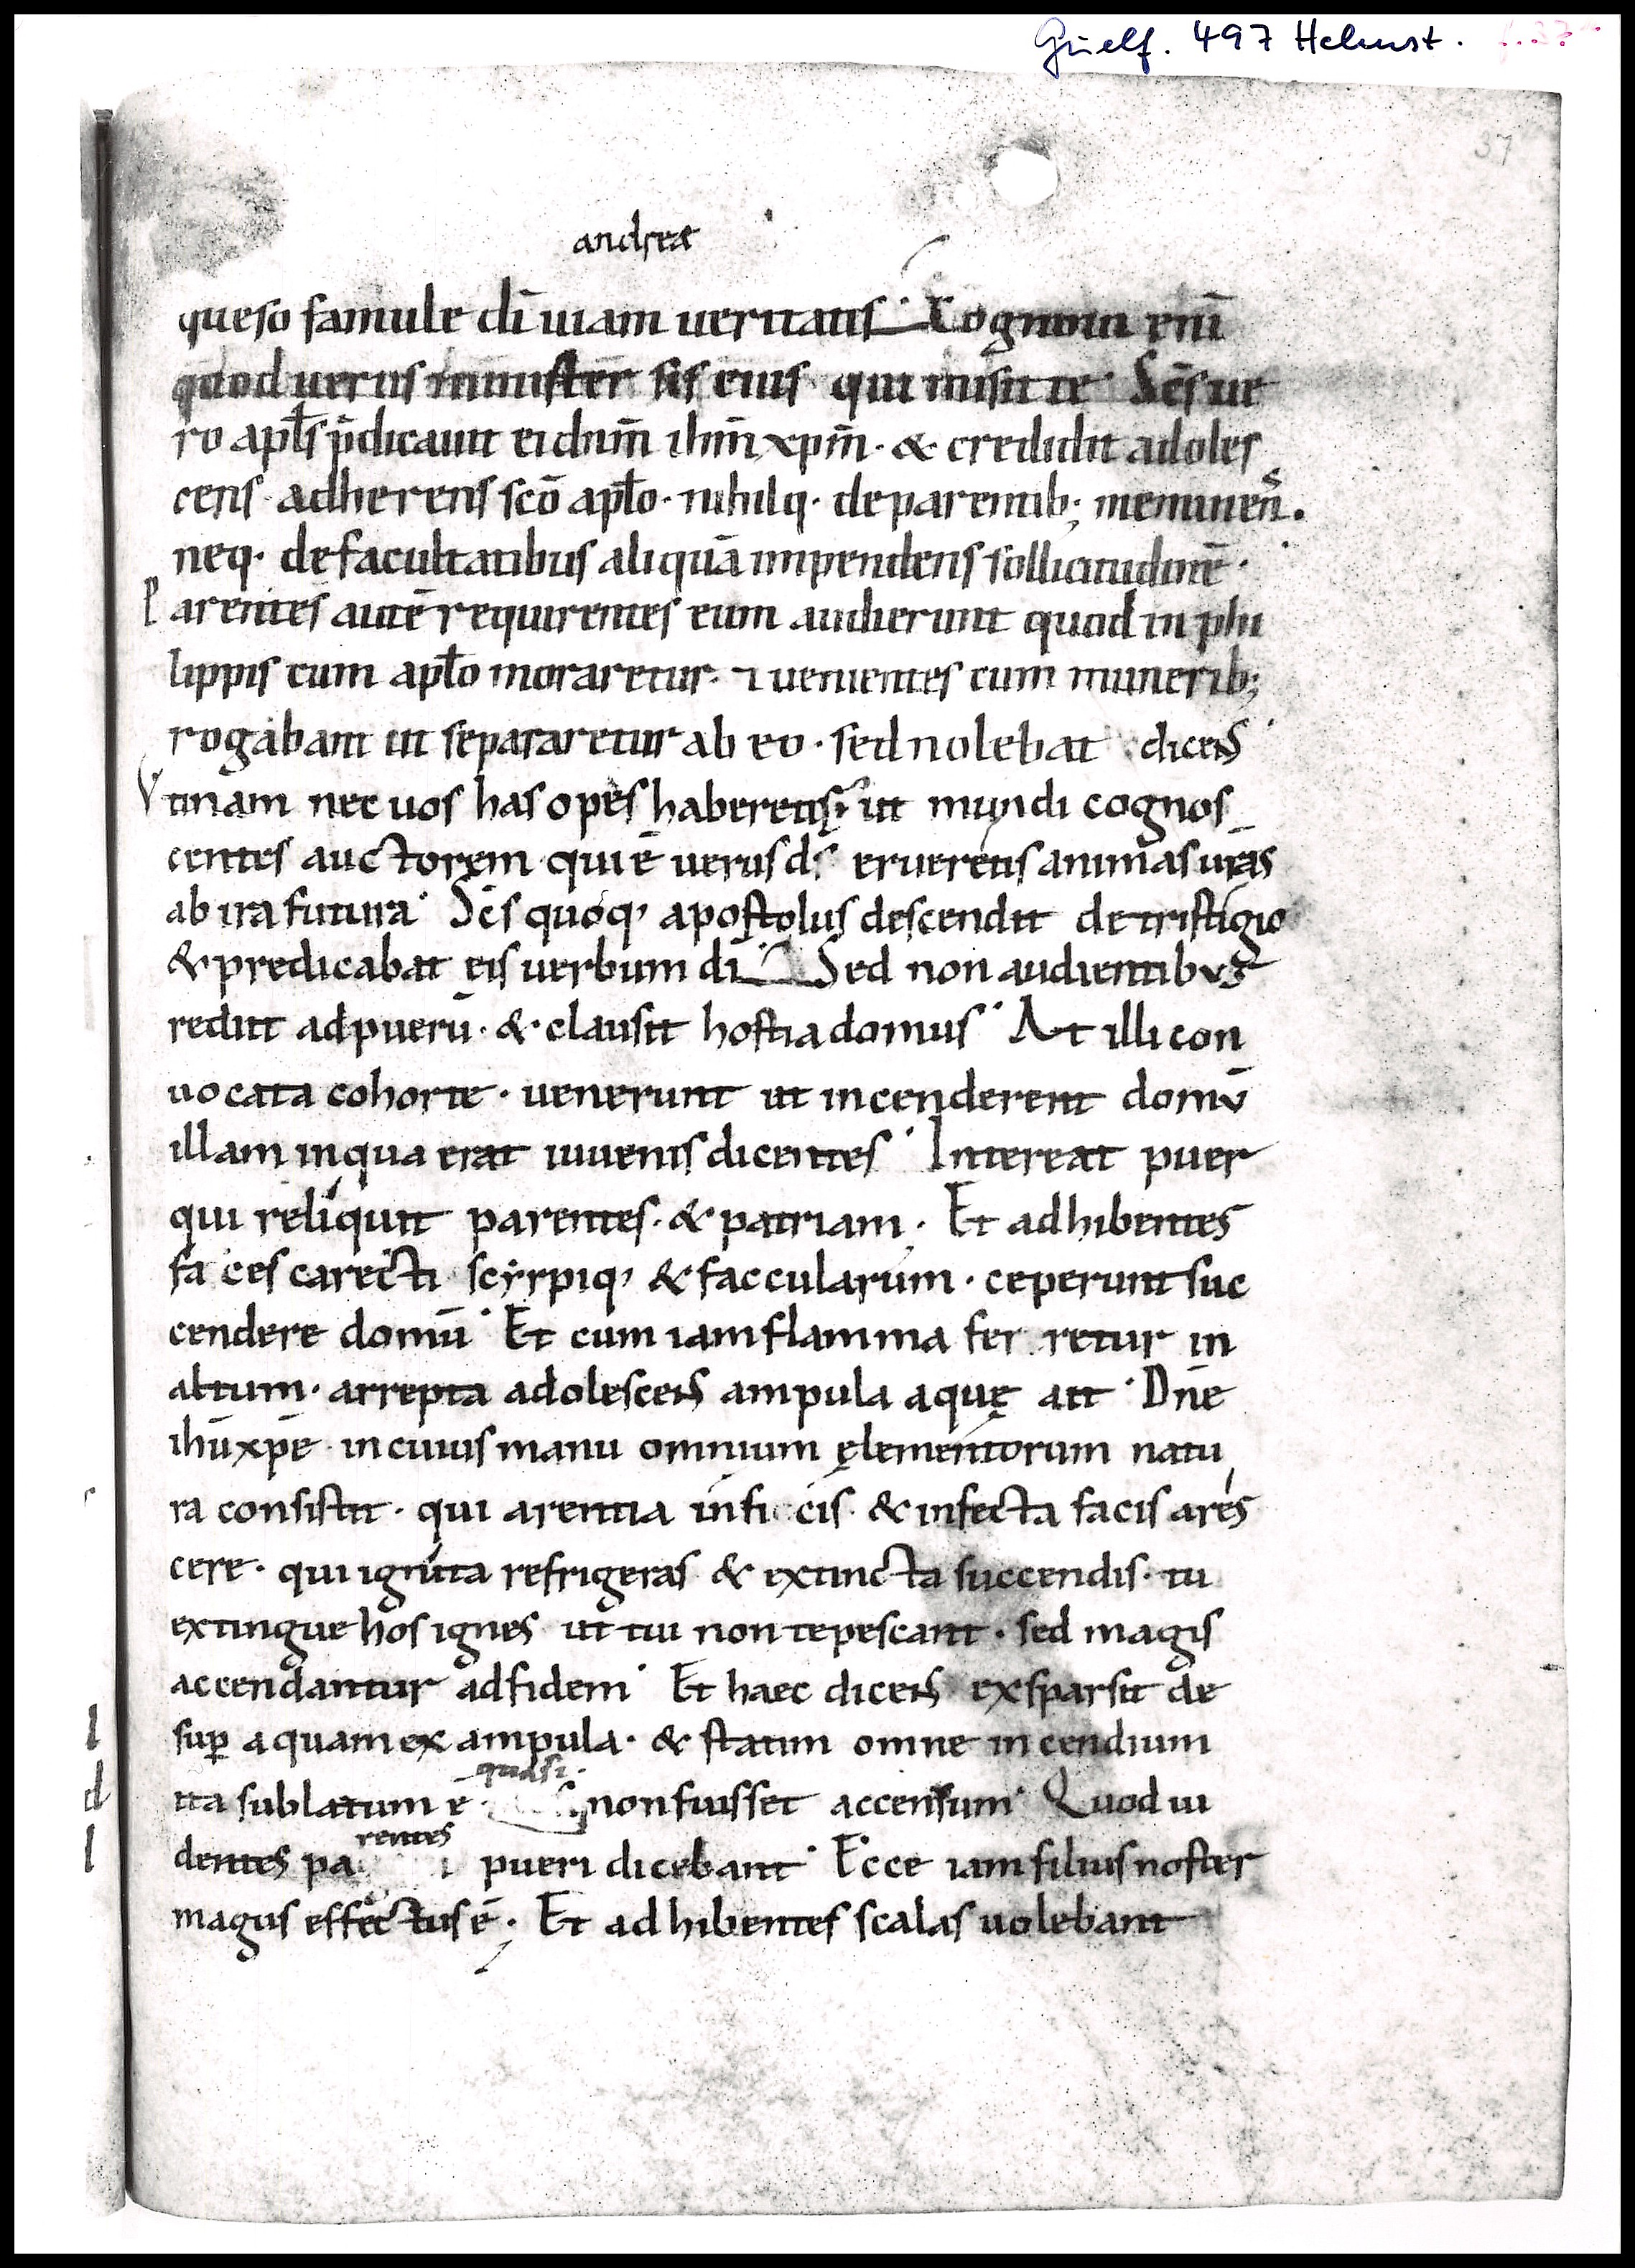 Guelf. 497 Helmst.
37
andreae
queso famule dī uiam ueritatis. Cognoui enī
quod uerus minister sis eius qui misit te. Scs̄ ue
ro apłs p̄dicauit ei dnm̄ ihm̄ xpm̄. & credidit adoles
cens adherens scō apło. nihilq. de parentib; meminen̄.
neq. de facultatibus aliquā impendens sollicitudinē.
Parentes autē requirentes eum audierunt quod in phi
lippis cum apło moraretur. ⁊ uenientes cum munerib;
rogabant ut separaretur ab eo. sed nolebat dicens
Vtinam nec uos has opes haberetis. ut mundi cognos
centes auctorem qui ē uerus ds̄ erueretis animas uras
ab ira futura. Scs̄ quoq, apostolus descendit de tristigio
& predicabat eis uerbum dī. Sed non audientibus
rediit ad puerū. & clausit hostia domus. At illi con
uocata cohorte. uenerunt ut incenderent domū
illam in qua erat iuuenis dicentes. Intereat puer
qui reliquit parentes. & patriam. Et adhibentes
fa ces carecti scyrpiq, & faccularum. ceperunt suc
cendere domū. Et cum iam flamma fer retur in
altum. arrepta adolescens ampula aquę ait. Dnē
ihū xpē in cuius manu omnium ęlementorum natu
ra consistit. qui arentia infi cis. & infecta facis ares
cere. qui ignita refrigeras & extincta succendis. tu
extingue hos ignes ut tui non tepescant. sed magis
accendantur ad fidem. Et haec dicens exsparsit de
sup̱ aquam ex ampula. & statim omne incendium
quasi
ita sublatum e non fuisset accensum. Quod ui
rentes
dentes pa i pueri dicebant. Ecce iam filius noster
magus effectus ē. Et adhibentes scalas uolebant